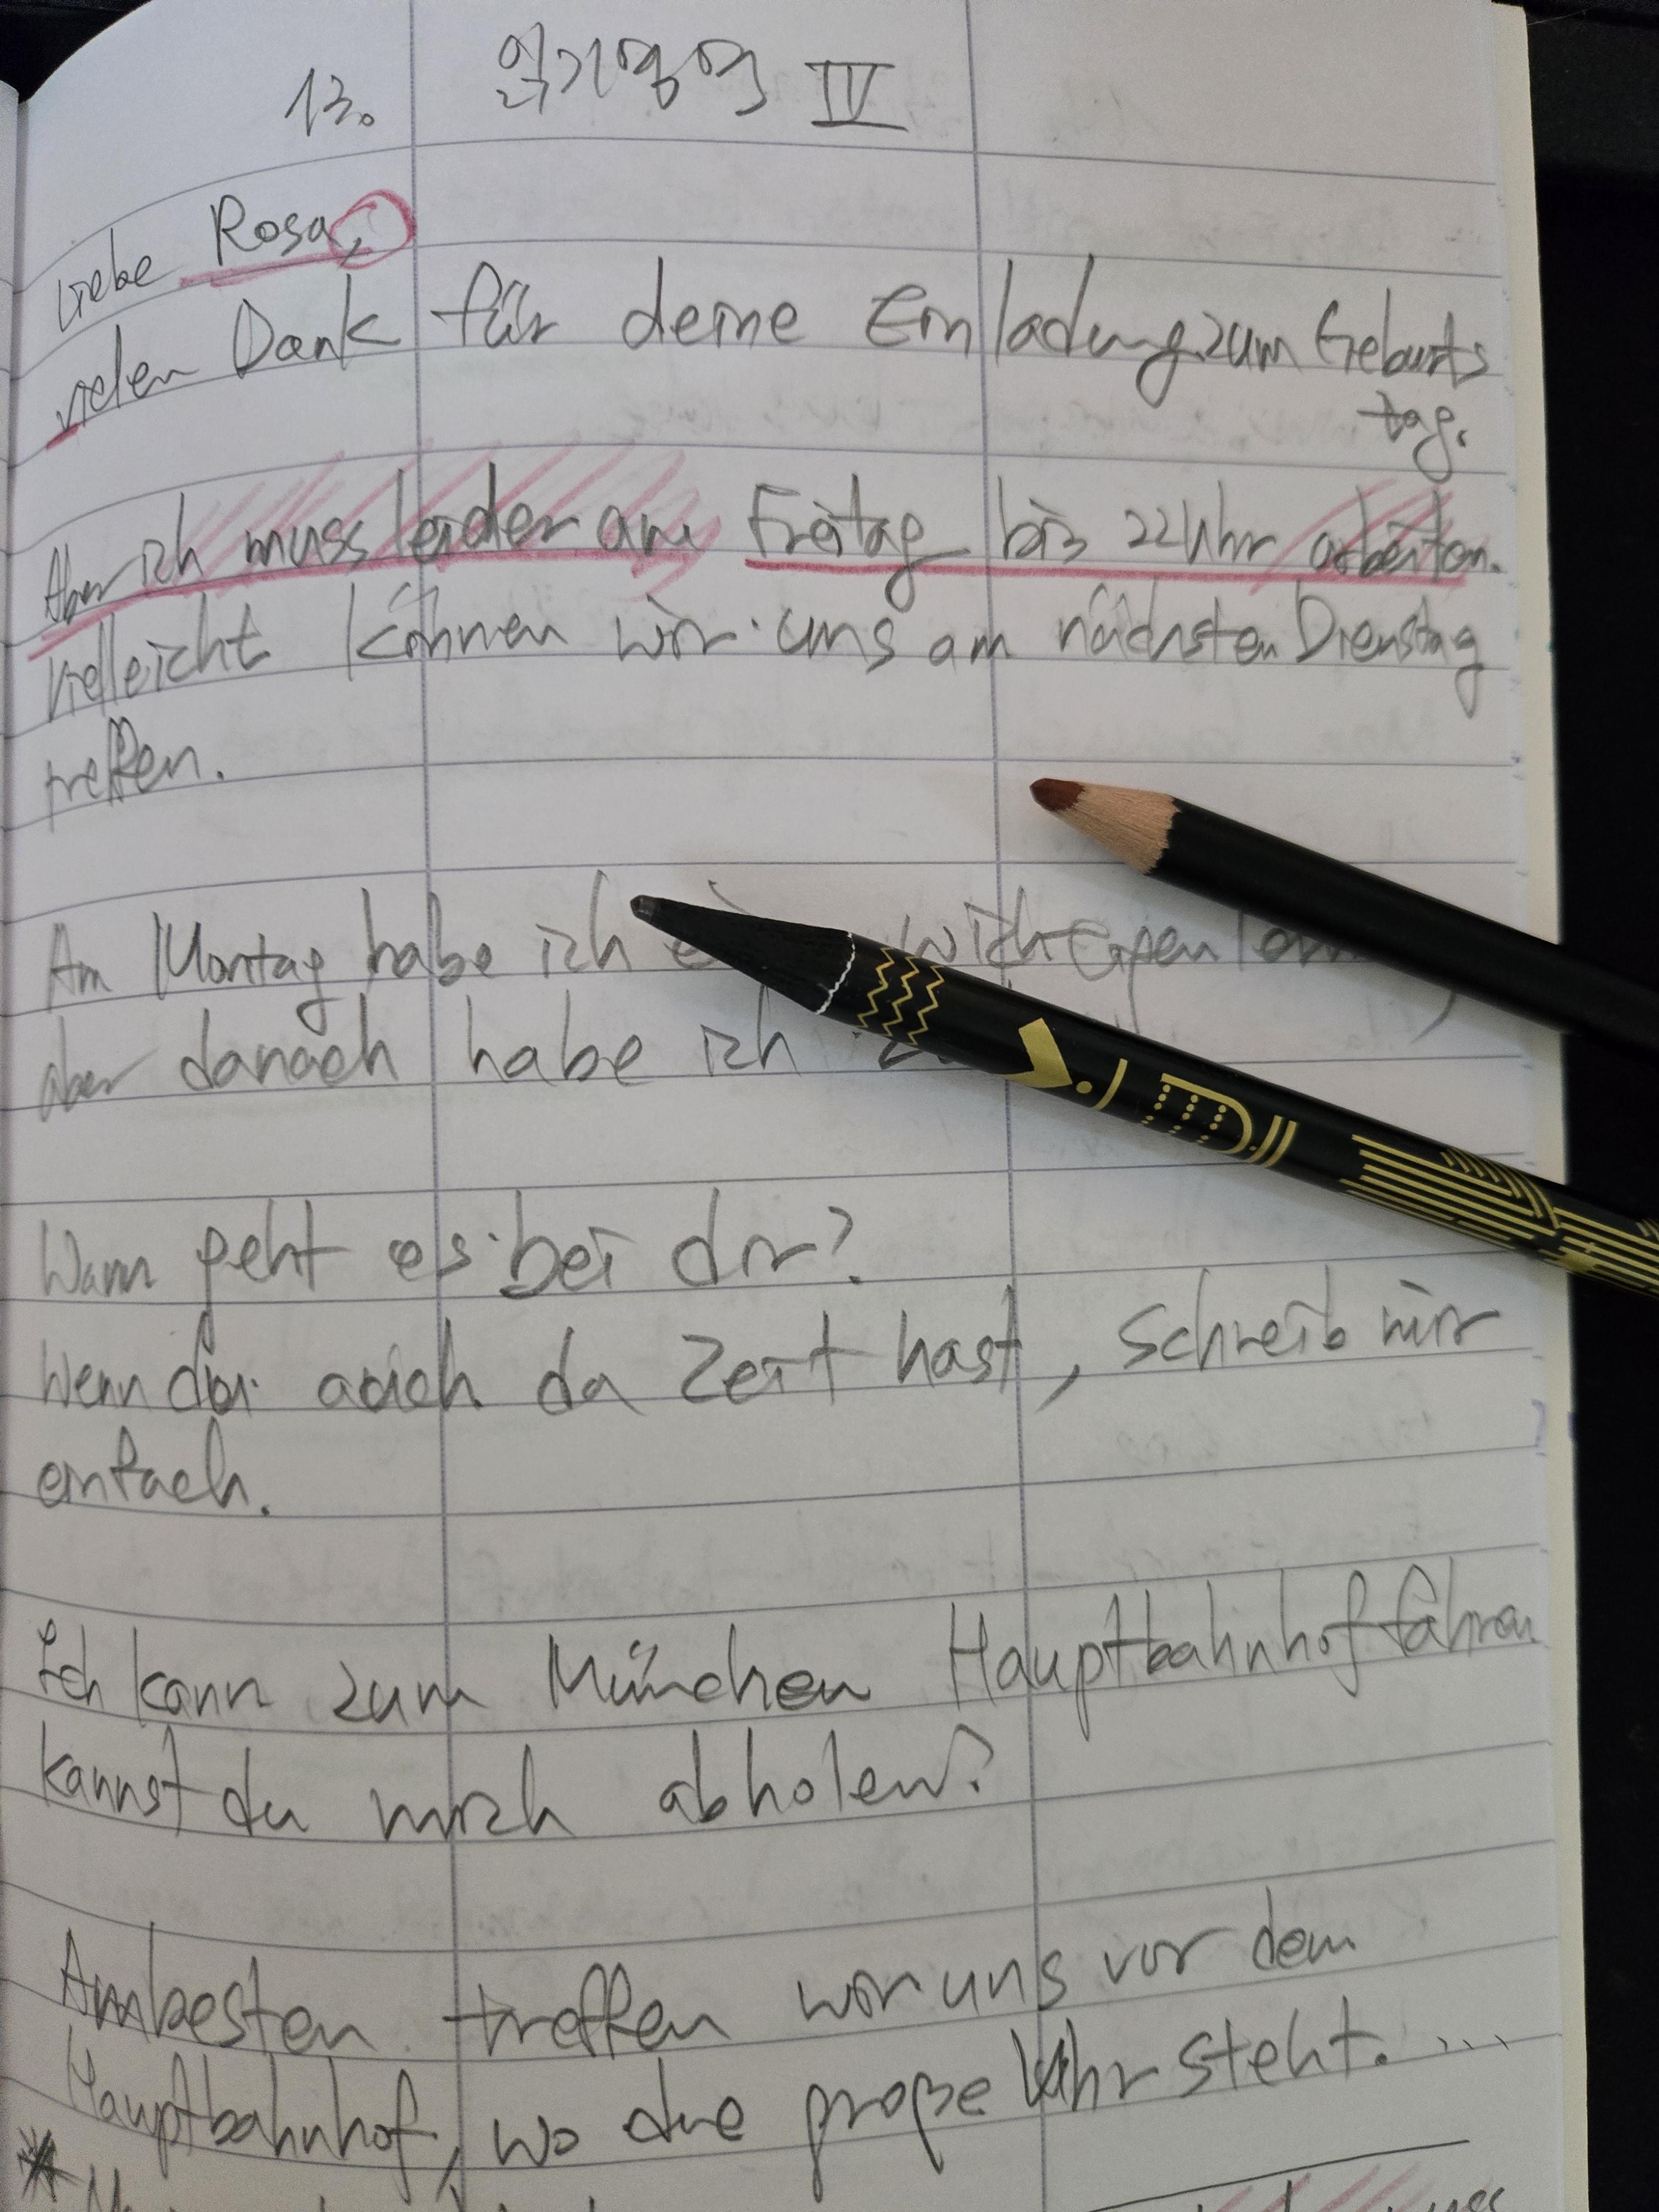 13. 읽기영역 IV
Liebe Rosa,
vielen Dank für deine Einladung zum Geburts
tag.
Aber ich muss leider am Freitag bis 22 Uhr arbeiten.
Vielleicht können wir uns am nächsten Dienstag
treffen.
Am Montag habe ich wichtigen
aber danach habe ich
Wann geht es bei dir?
Wenn du auch da Zeit hast, schreib mir
einfach.
Ich kann zum München Hauptbahnhof fahren
kannst du mich abholen?
Am besten treffen wir uns vor dem
Hauptbahnhof, wo die große Uhr steht. ...